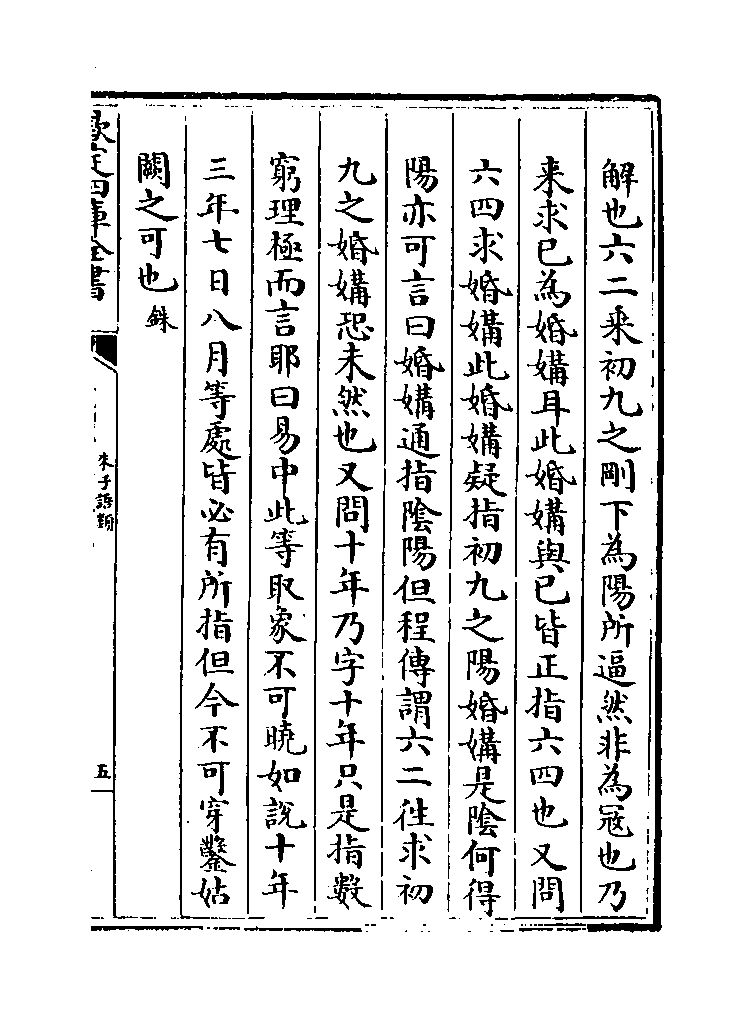 解也六二乘初九之剛下為陽所逼然非為冦也乃
来求已為婚媾耳此婚媾與已皆正指六四也又問
六四求婚媾此婚媾疑指初九之陽婚媾是陰何得
陽亦可言曰婚媾通指陰陽但程傳謂六二往求初
九之婚媾恐未然也又問十年乃字十年只是指數
窮理極而言耶曰易中此等取象不可曉如說十年
三年七日八月等處皆必有所指但今不可穿鑿姑
闕之可也銖
欽定四庫全書
朱子語類
五